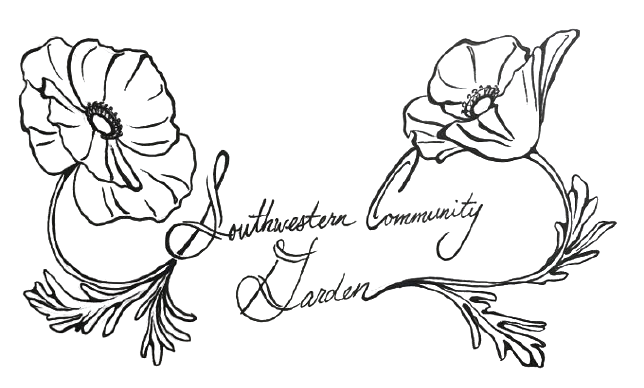 Southwestern Community
Garden